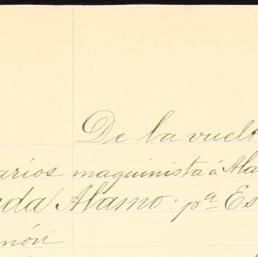 De la vuelt
arios maquinista á Ala
da Alamo: pª Es
món